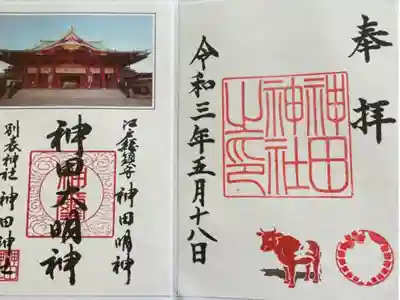 奉拝
神田
神社
之印
令和三年五月十八日
江戸総鎮守 神田明神
神田大明神
別表神社 神田神社